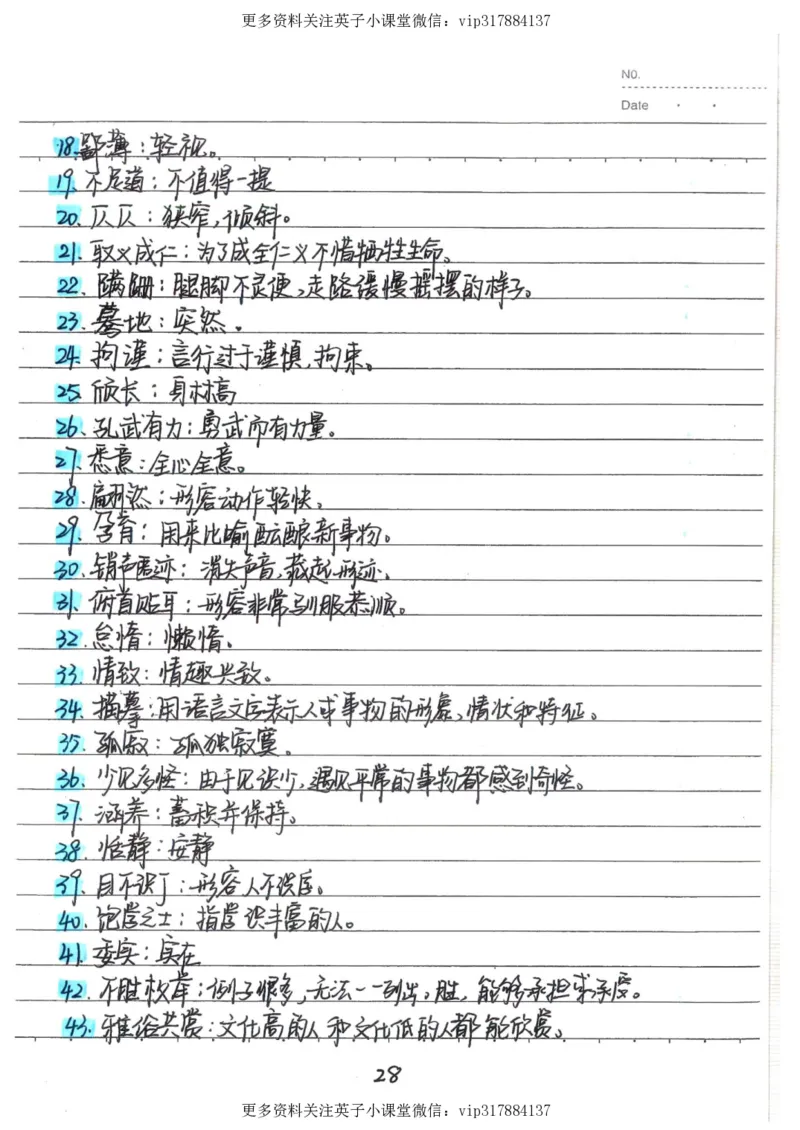 更多资料关注英子小课堂微信：vip317884137
NO.
Date
18.鄙薄：轻视。
19、不足道：不值得一提
20、仄仄：狭窄，倾斜。
21、取义成仁：为了成全仁义不惜牺牲生命。
22、蹒跚：腿脚不灵便，走路缓慢摇摆的样子。
23、蓦地：突然。
24、拘谨：言行过于谨慎，拘束。
25、颀长：身材高
26、孔武有力：勇武而有力量。
27、悉意：全心全意。
28、翩然：形容动作轻快。
29、孕育：用来比喻酝酿新事物。
30、销声匿迹：消失声音，藏起形迹。
31、俯首贴耳：形容非常驯服恭顺。
32、怠惰：懒惰。
33、情致：情趣兴致。
34、描摹：用语言文字表示人或事物的形象、情状和特征。
35、孤寂：孤独寂寞。
36、少见多怪：由于见识少，遇见平常的事物都感到奇怪。
37、涵养：蓄积并保持。
38、恬静：安静
39、目不识丁：形容人不识字。
40、饱学之士：指学识丰富的人。
41、委实：实在
42、不胜枚举：例子很多，无法一一列出。胜，能够承担或承受。
43、雅俗共赏：文化高的人和文化低的人都能欣赏。
28
更多资料关注英子小课堂微信：vip317884137